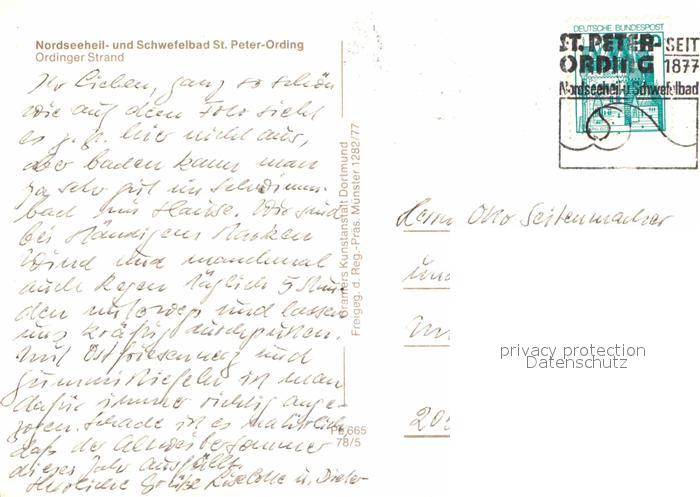 Nordseeheil- und Schwefelbad St. Peter-Ording
Ordinger Strand
Ihr Lieben, ganz so schön
wie auf dem Foto sieht
es z. Z. hier nicht aus,
aber baden kann man
ja sehr gut im Schwimm-
bad im Hause. Wir sind
bei ständigem starken
Wind und manchmal
auch Regen täglich 5 Stun-
den unterwegs und lassen
uns kräftig durchpusten.
Mit Ostfriesennerz und
Gummistiefeln ist man
dafür immer richtig ange-
zogen. Schade ist es natürlich
daß der Altweibersommer
dieses Jahr ausfällt.
Herzliche Grüße Liselotte u. Dieter
Kunstanstalt Dortmund
Freigeg. d. Reg.-Präs. Münster 1282/77
665
78/5
DEUTSCHE BUNDESPOST
ST. PETER-
ORDING
SEIT
1877
Nordseeheil-u Schwefelbad
Herrn Otto Seitenmacher
und
privacy protection
Datenschutz